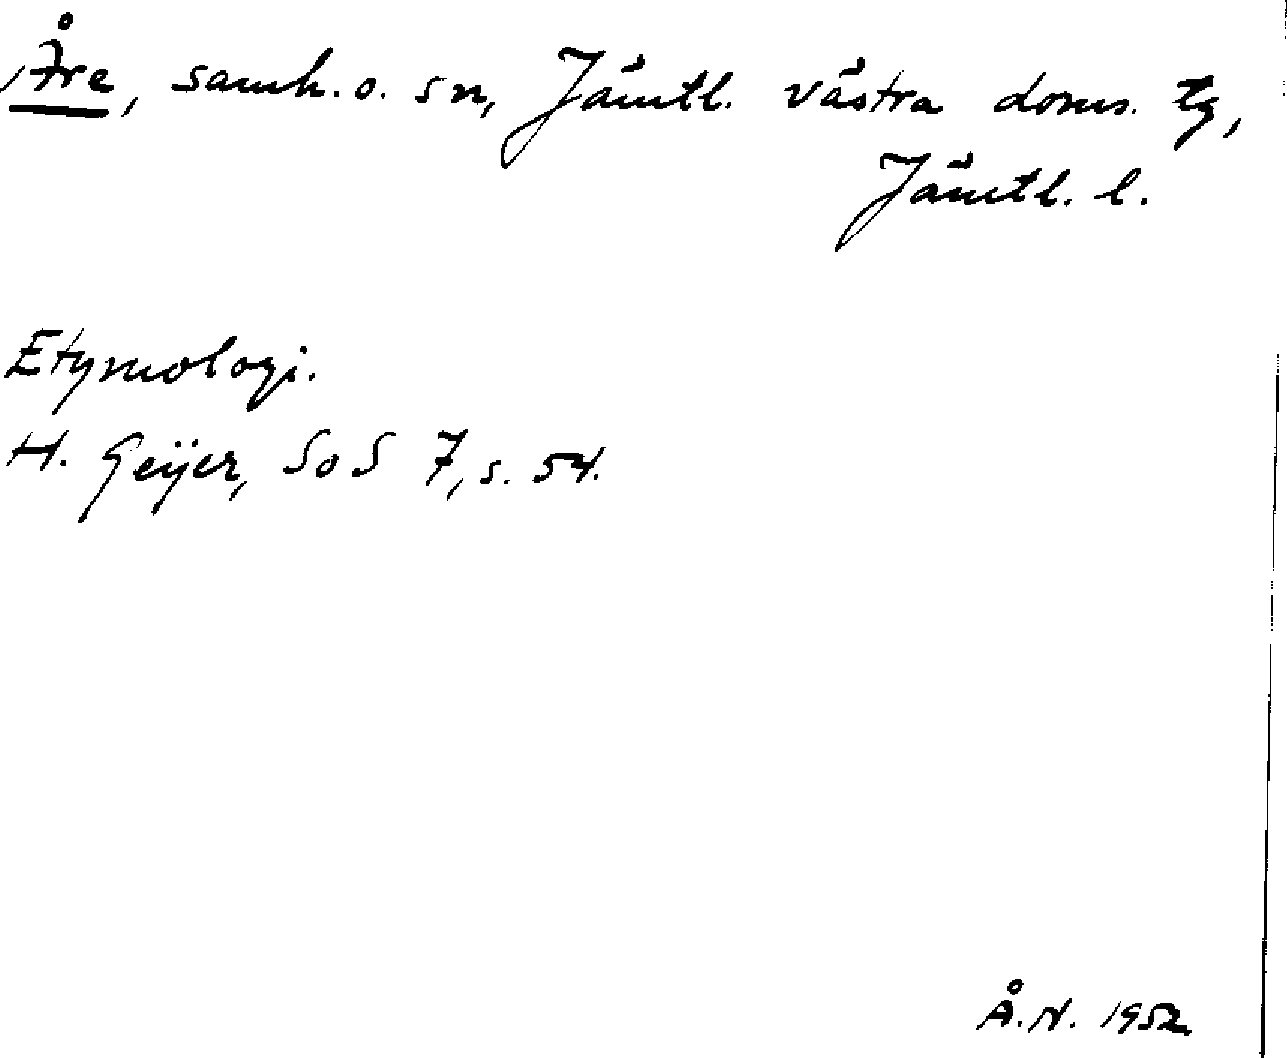 Åre, samh. o. sn, Jämtl. västra doms. tg,
Jämtl. l.
Etymologi.
H. Geijer, SoS 7, s. 54.
Å.N. 1952